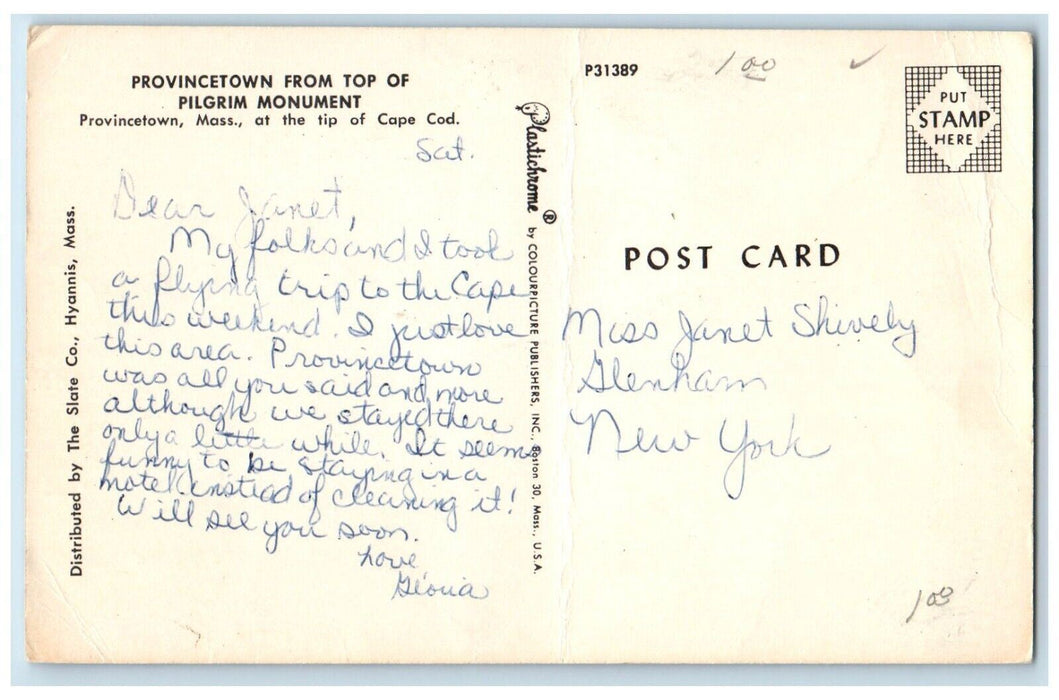 PROVINCETOWN FROM TOP OF
PILGRIM MONUMENT
Provincetown, Mass., at the tip of Cape Cod.
Sat.
Dear Janet,
My folks and I took
a flying trip to the Cape
this weekend. I just love
this area. Provincetown
was all you said and more
although we stayed there
only a little while. It seems
funny to be staying in a
motel instead of cleaning it!
Will see you soon.
Love
Gloria
Distributed by The Slate Co., Hyannis, Mass.
Plastichrome ® by COLOURPICTURE PUBLISHERS, INC., Boston 30, Mass., U.S.A.
P31389
1.00 ✓
PUT
STAMP
HERE
POST CARD
Miss Janet Shively
Glenham
New York
100